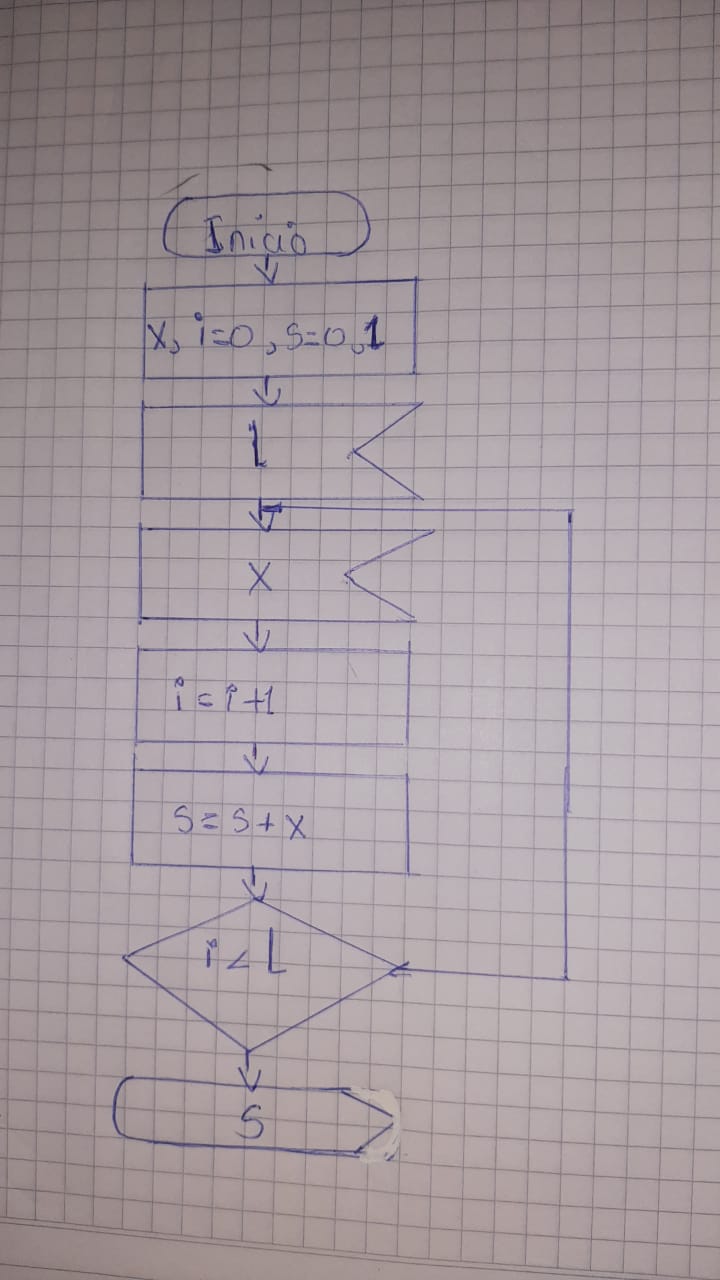 Inicio
x, i=0, s=0, l
l
x
i=i+1
s=s+x
i<L
S